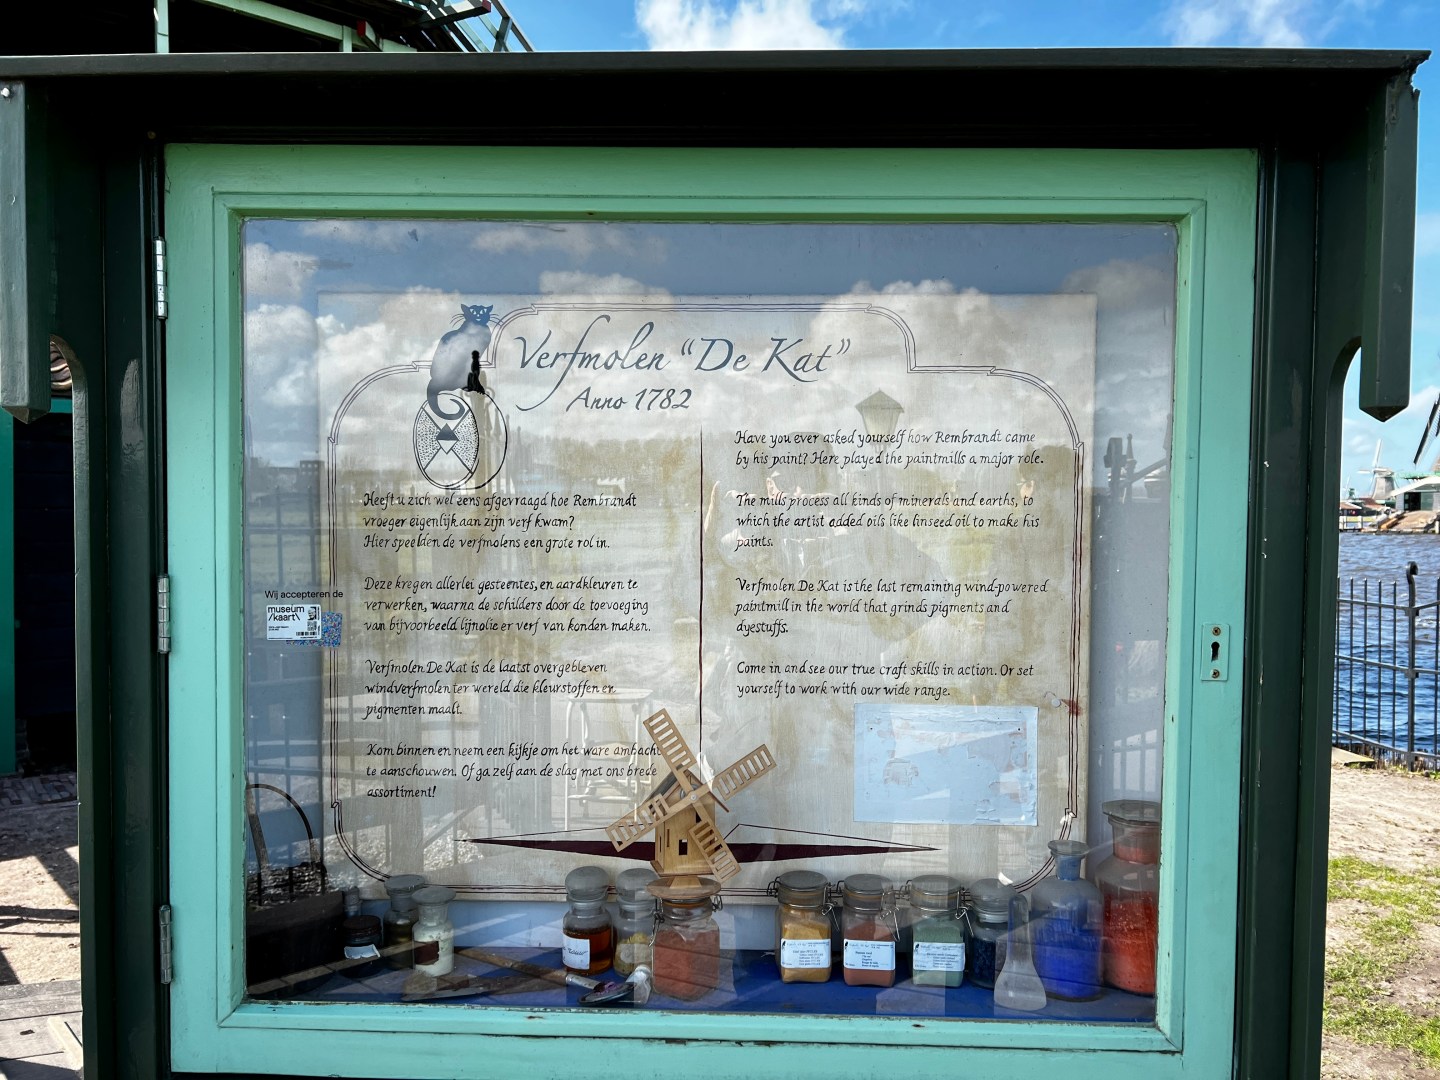 Verfmolen "De Kat"
Anno 1782
Heeft u zich wel eens afgevraagd hoe Rembrandt
vroeger eigenlijk aan zijn verf kwam?
Hier speelden de verfmolens een grote rol in.
Deze kregen allerlei gesteentes, en aardkleuren te
verwerken, waarna de schilders door de toevoeging
van bijvoorbeeld lijnolie er verf van konden maken.
Verfmolen De Kat is de laatst overgebleven
windverfmolen ter wereld die kleurstoffen en
pigmenten maalt.
Kom binnen en neem een kijkje om het ware ambacht
te aanschouwen. Of ga zelf aan de slag met ons brede
assortiment!
Have you ever asked yourself how Rembrandt came
by his paint? Here played the paintmills a major role.
The mills process all kinds of minerals and earths, to
which the artist added oils like linseed oil to make his
paints.
Verfmolen De Kat is the last remaining wind-powered
paintmill in the world that grinds pigments and
dyestuffs.
Come in and see our true craft skills in action. Or set
yourself to work with our wide range.
Wij accepteren de
museum
/kaart\